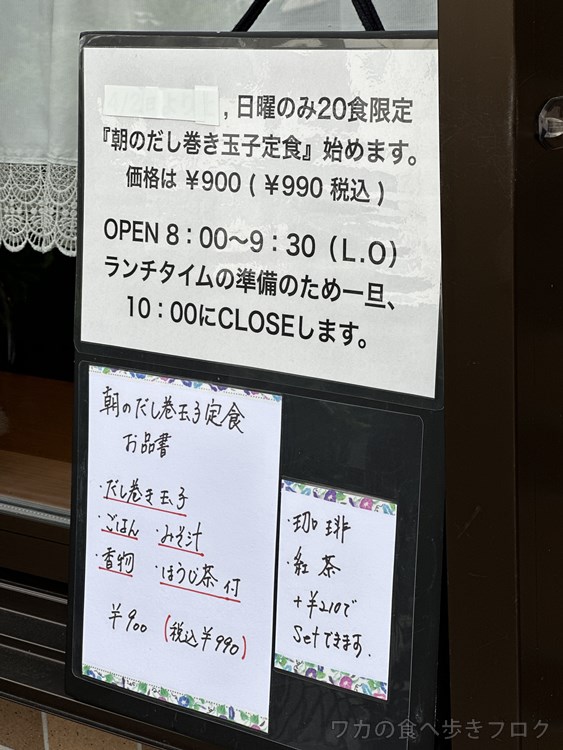 , 日曜のみ20食限定
『朝のだし巻き玉子定食』始めます。
価格は ¥900 ( ¥990 税込 )
OPEN 8：00〜9：30（L.O）
ランチタイムの準備のため一旦、
10：00にCLOSEします。
朝のだし巻玉子定食
お品書
・だし巻き玉子
・ごはん ・みそ汁
・香物 ・ほうじ茶 付
¥900 (税込¥990)
・珈琲
・紅茶
+¥210で
Setできます.
ワカの食べ歩きブログ